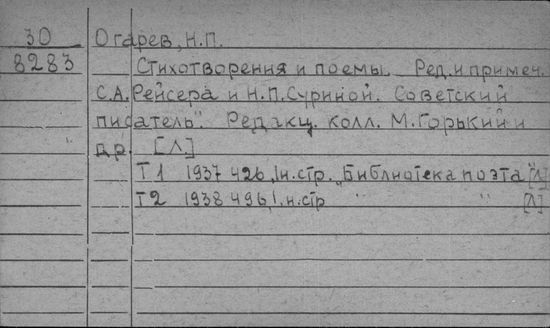 30 Огарев, Н.П.
8283 Стихотворения и поэмы. Ред. и примеч.
С.А. Рейсера и Н.П. Суриной. Советский
писатель". Редакц. колл. М. Горький и
др. [Л]
Т1 1937 426, 1н.стр. "Библиотека поэта" [Л]
Т2 1938 496, 1.н.стр " " [Л]